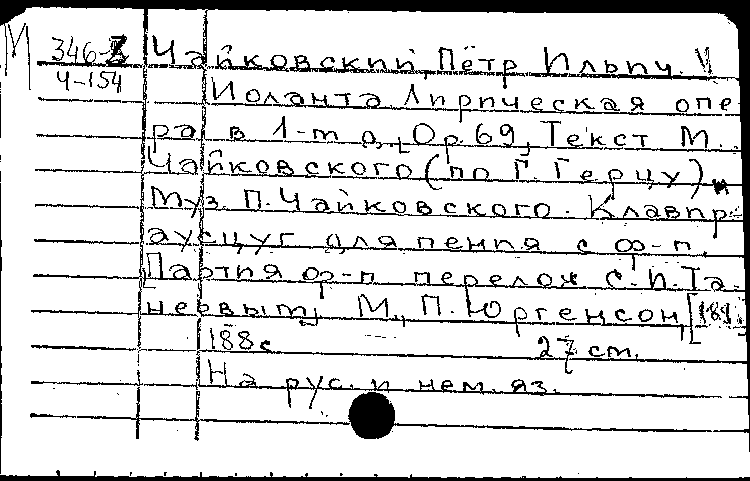 М 346-3 Чайковский, Пётр Ильич.
Ч-154 Иоланта Лирическая опе-
ра в 1-т д., Ор. 69, Текст М.
Чайковского (по Г. Герцу) и
Муз. П. Чайковского. Клавир-
аусцуг для пения с ф-п.
Партия ф-п перелож С. И. Та-
невым, М., П. Юргенсон, [189.
188 с. 27 ст.
На рус. и нем. яз.